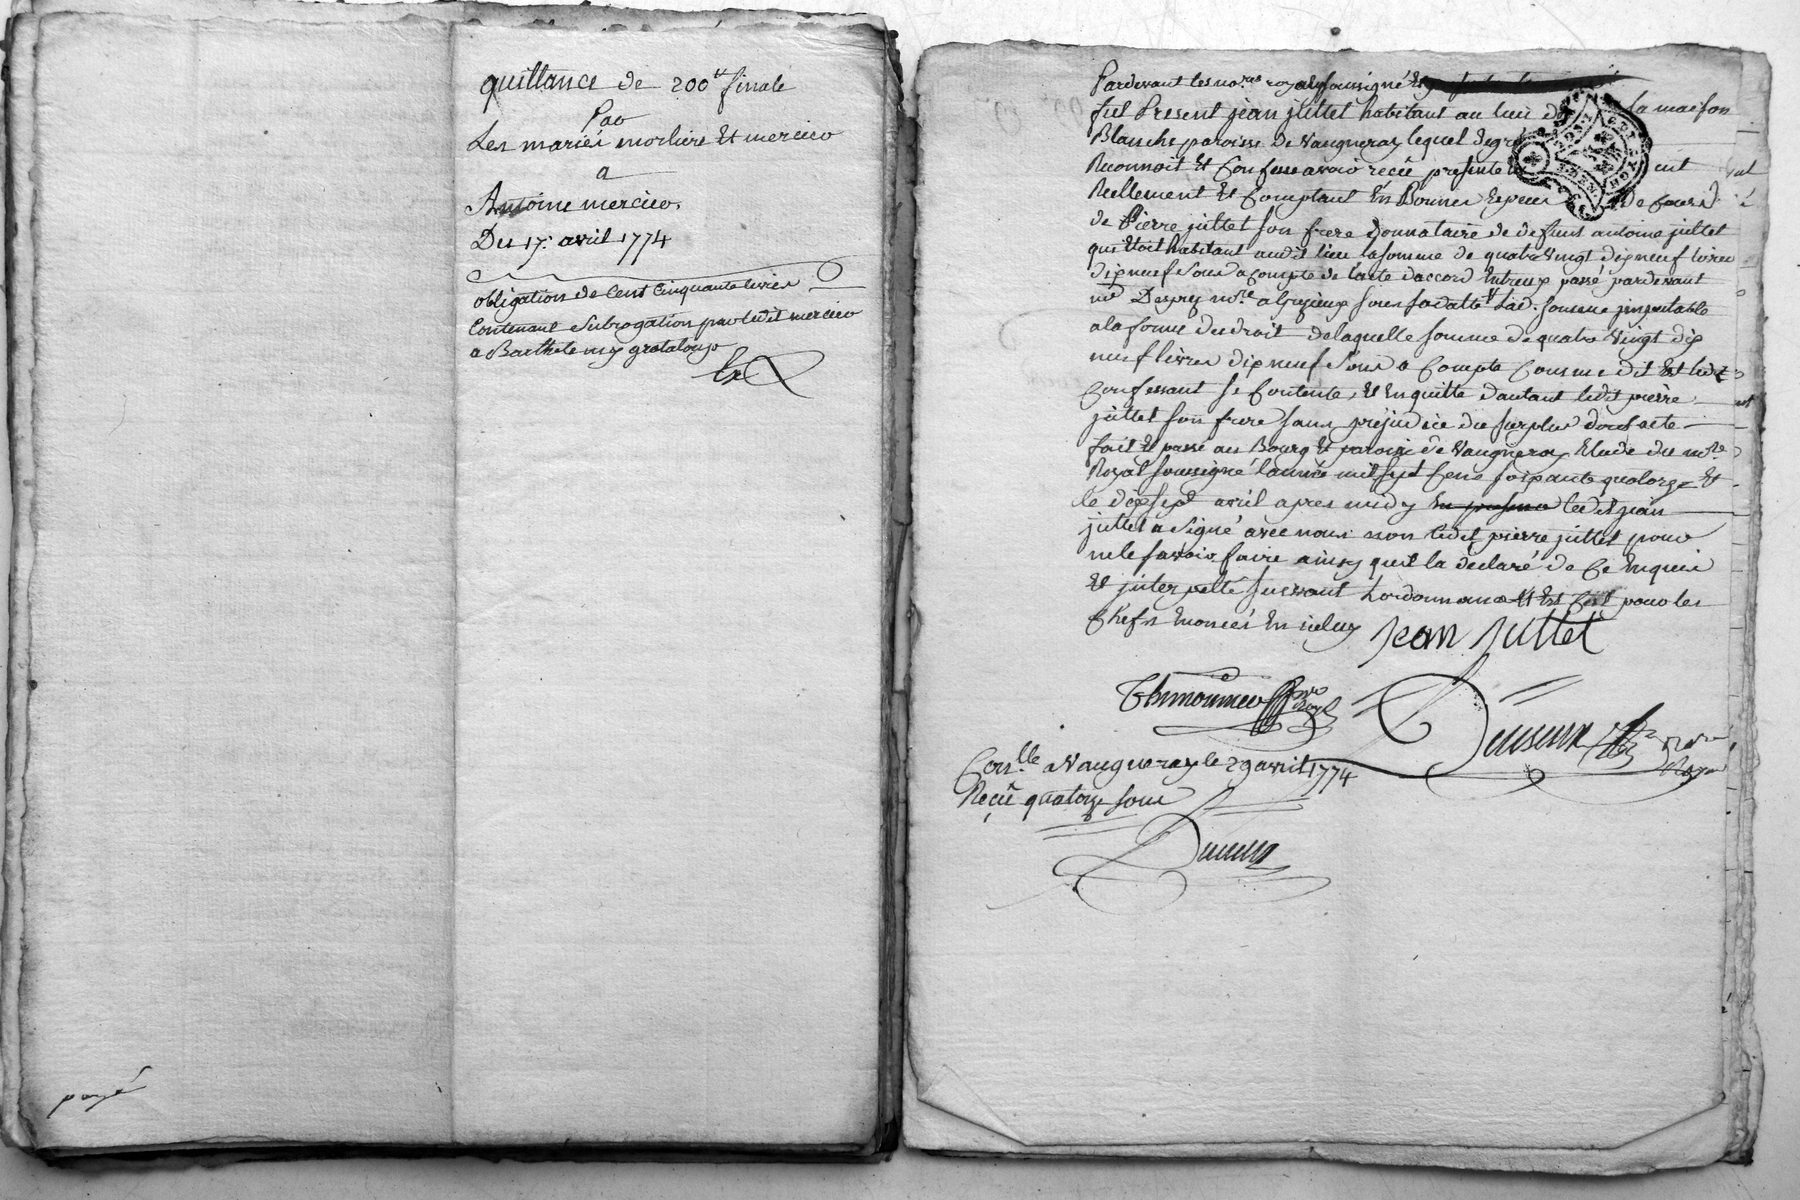 quittance de 200tt finale
Par
Les mariés morliere Et mercier
a
Antoine mercier.
Du 17: avril 1774
obligation de Cent Cinquante livres
Contenant Subrogation par ledit mercier
a Barthelemy grataloup
payé
Pardevant les no.res royaux soussignés
fut Present jean juttet habitant au lieu de la maison
Blanche paroisse de Vaugneray lequel de gré
Reconnoit Et Confesse avoir recu presentement
Reellement Et Comptant En Bonnes Especes de Cours
de Pierre juttet son frere Donnataire de defunt antoine juttet
qui Etoit habitant audit lieu la somme de quatre Vingt dix neuf livres
dix neuf Sous a Compte de l'acte d'accord Entreux passé pardevant
me Desprez no.re a Grezieux sous sa datte Lad. somme imputable
a la forme du droit de laquelle somme de quatre Vingt dix
neuf livres dix neuf Sous a Compte Comme dit Est ledit
Confessant se Contente, Et En quitte d'autant ledit pierre
juttet son frere sans prejudice du surplus dont acte
fait Et passé au Bourg Et paroisse de Vaugneray Etude du no.re
Royal soussigné l'année mil sept Cens soixante quatorze Et
le dix sept avril apres midy En presence ledit jean
juttet a Signé avec nous non ledit pierre juttet pour
ne le savoir faire ainsy qu'il la déclaré de Ce Enquis
Et interpellé suivant l'ordonnance Et Est pour les
Chefs Enoncés En icelluy
Jean Juttet
Con.lle a Vaugneray le 29 avril 1774
Reçu quatorze sous